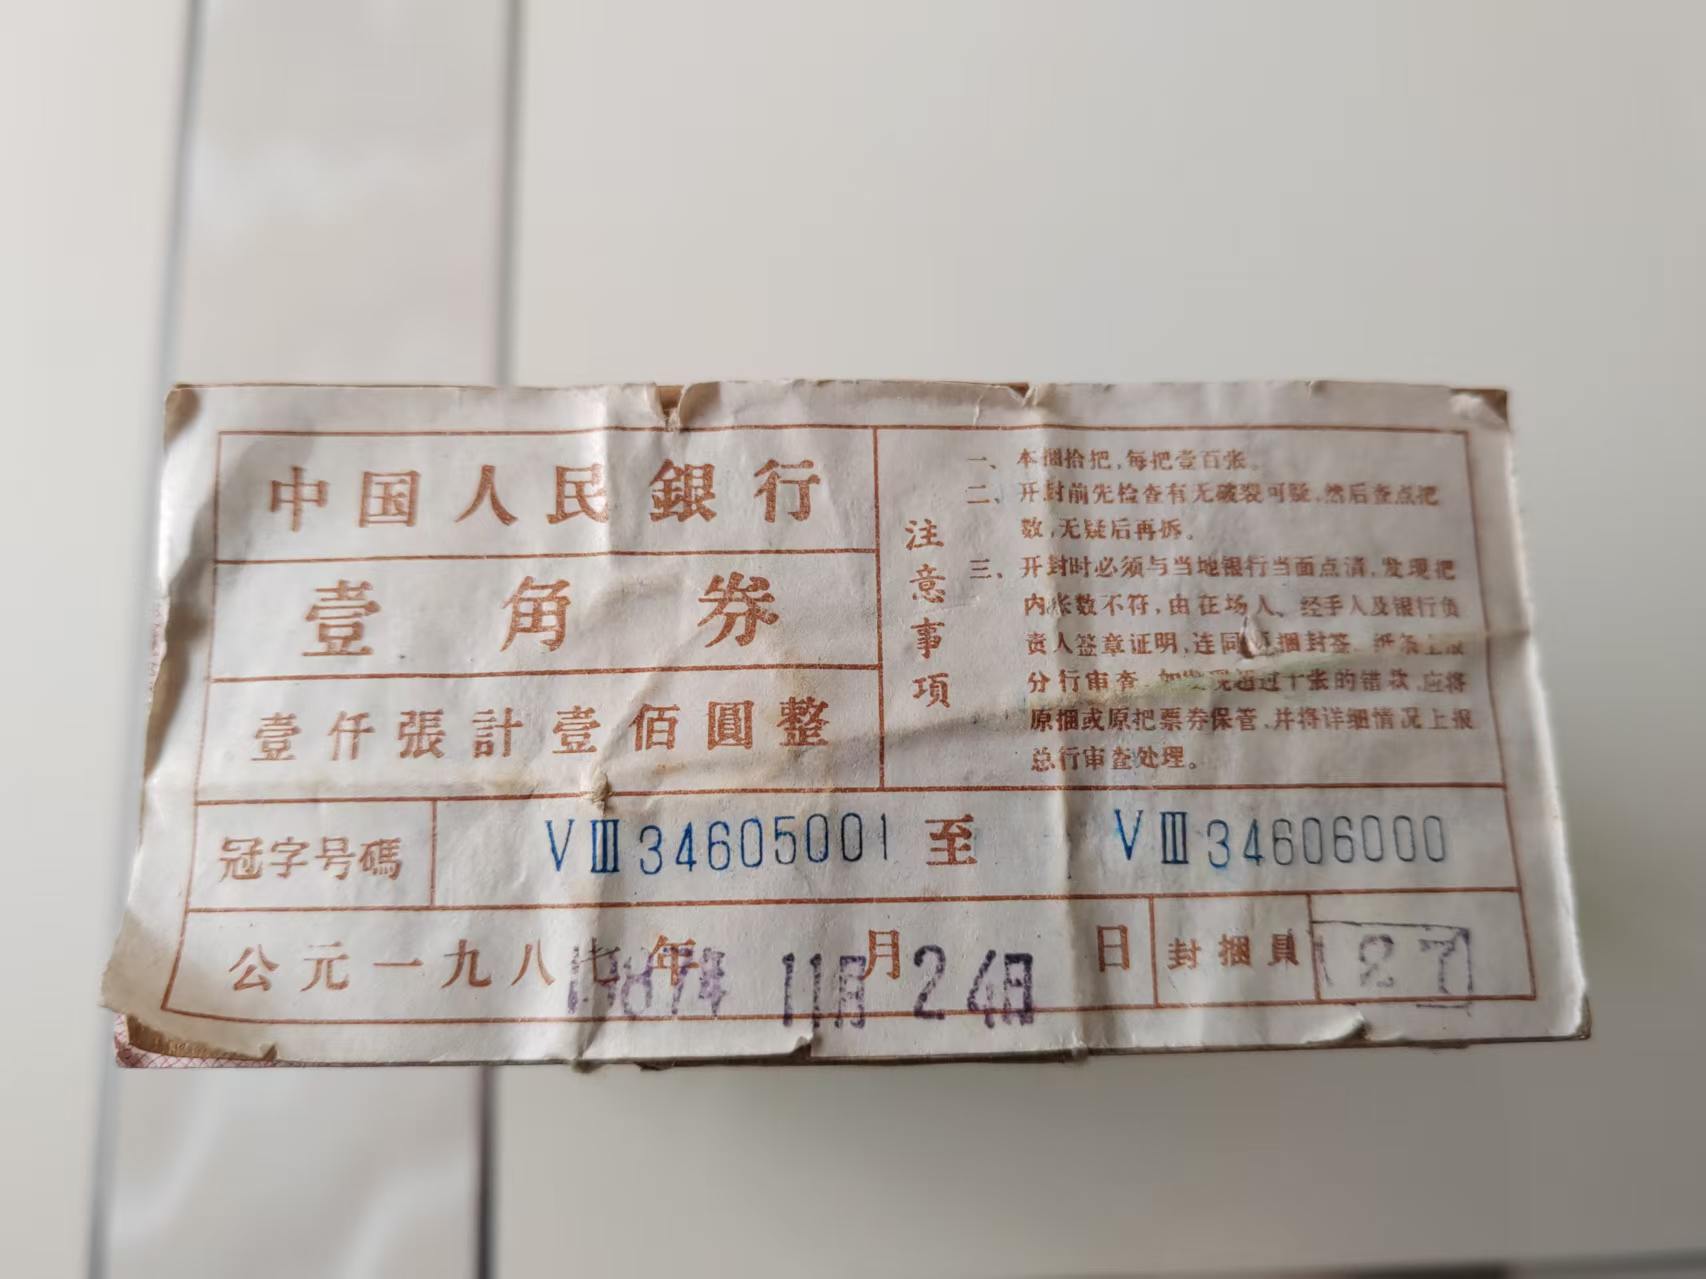 中国人民銀行
壹角券
壹仟張計壹佰圓整
注意事項
一、本捆拾把，每把壹百张。
二、开封前先检查有无破裂可疑，然后查点把
数，无疑后再拆。
三、开封时必须与当地银行当面点清，发现把
内张数不符，由在场人、经手人及银行负
责人签章证明，连同原捆封签、纸条上报
分行审查，如发现超过十张的错款，应将
原捆或原把票券保管，并将详细情况上报
总行审查处理。
冠字号碼 VⅢ34605001 至 VⅢ34606000
公元一九八七年 月 日 封捆員 27
1987年 11月 24日